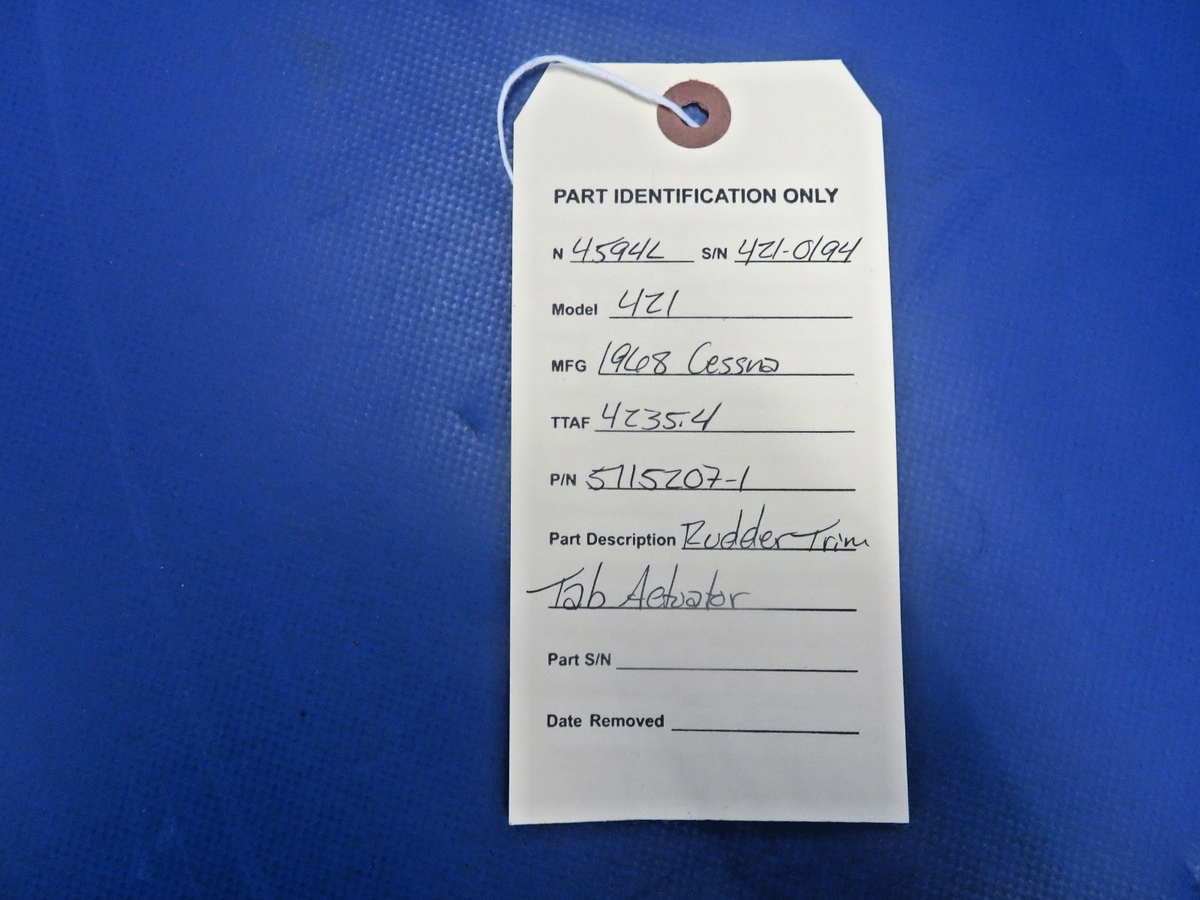 PART IDENTIFICATION ONLY
N 4594L S/N 421-0194
Model 421
MFG 1968 Cessna
TTAF 4235.4
P/N 5115207-1
Part Description Rudder Trim
Tab Actuator
Part S/N
Date Removed